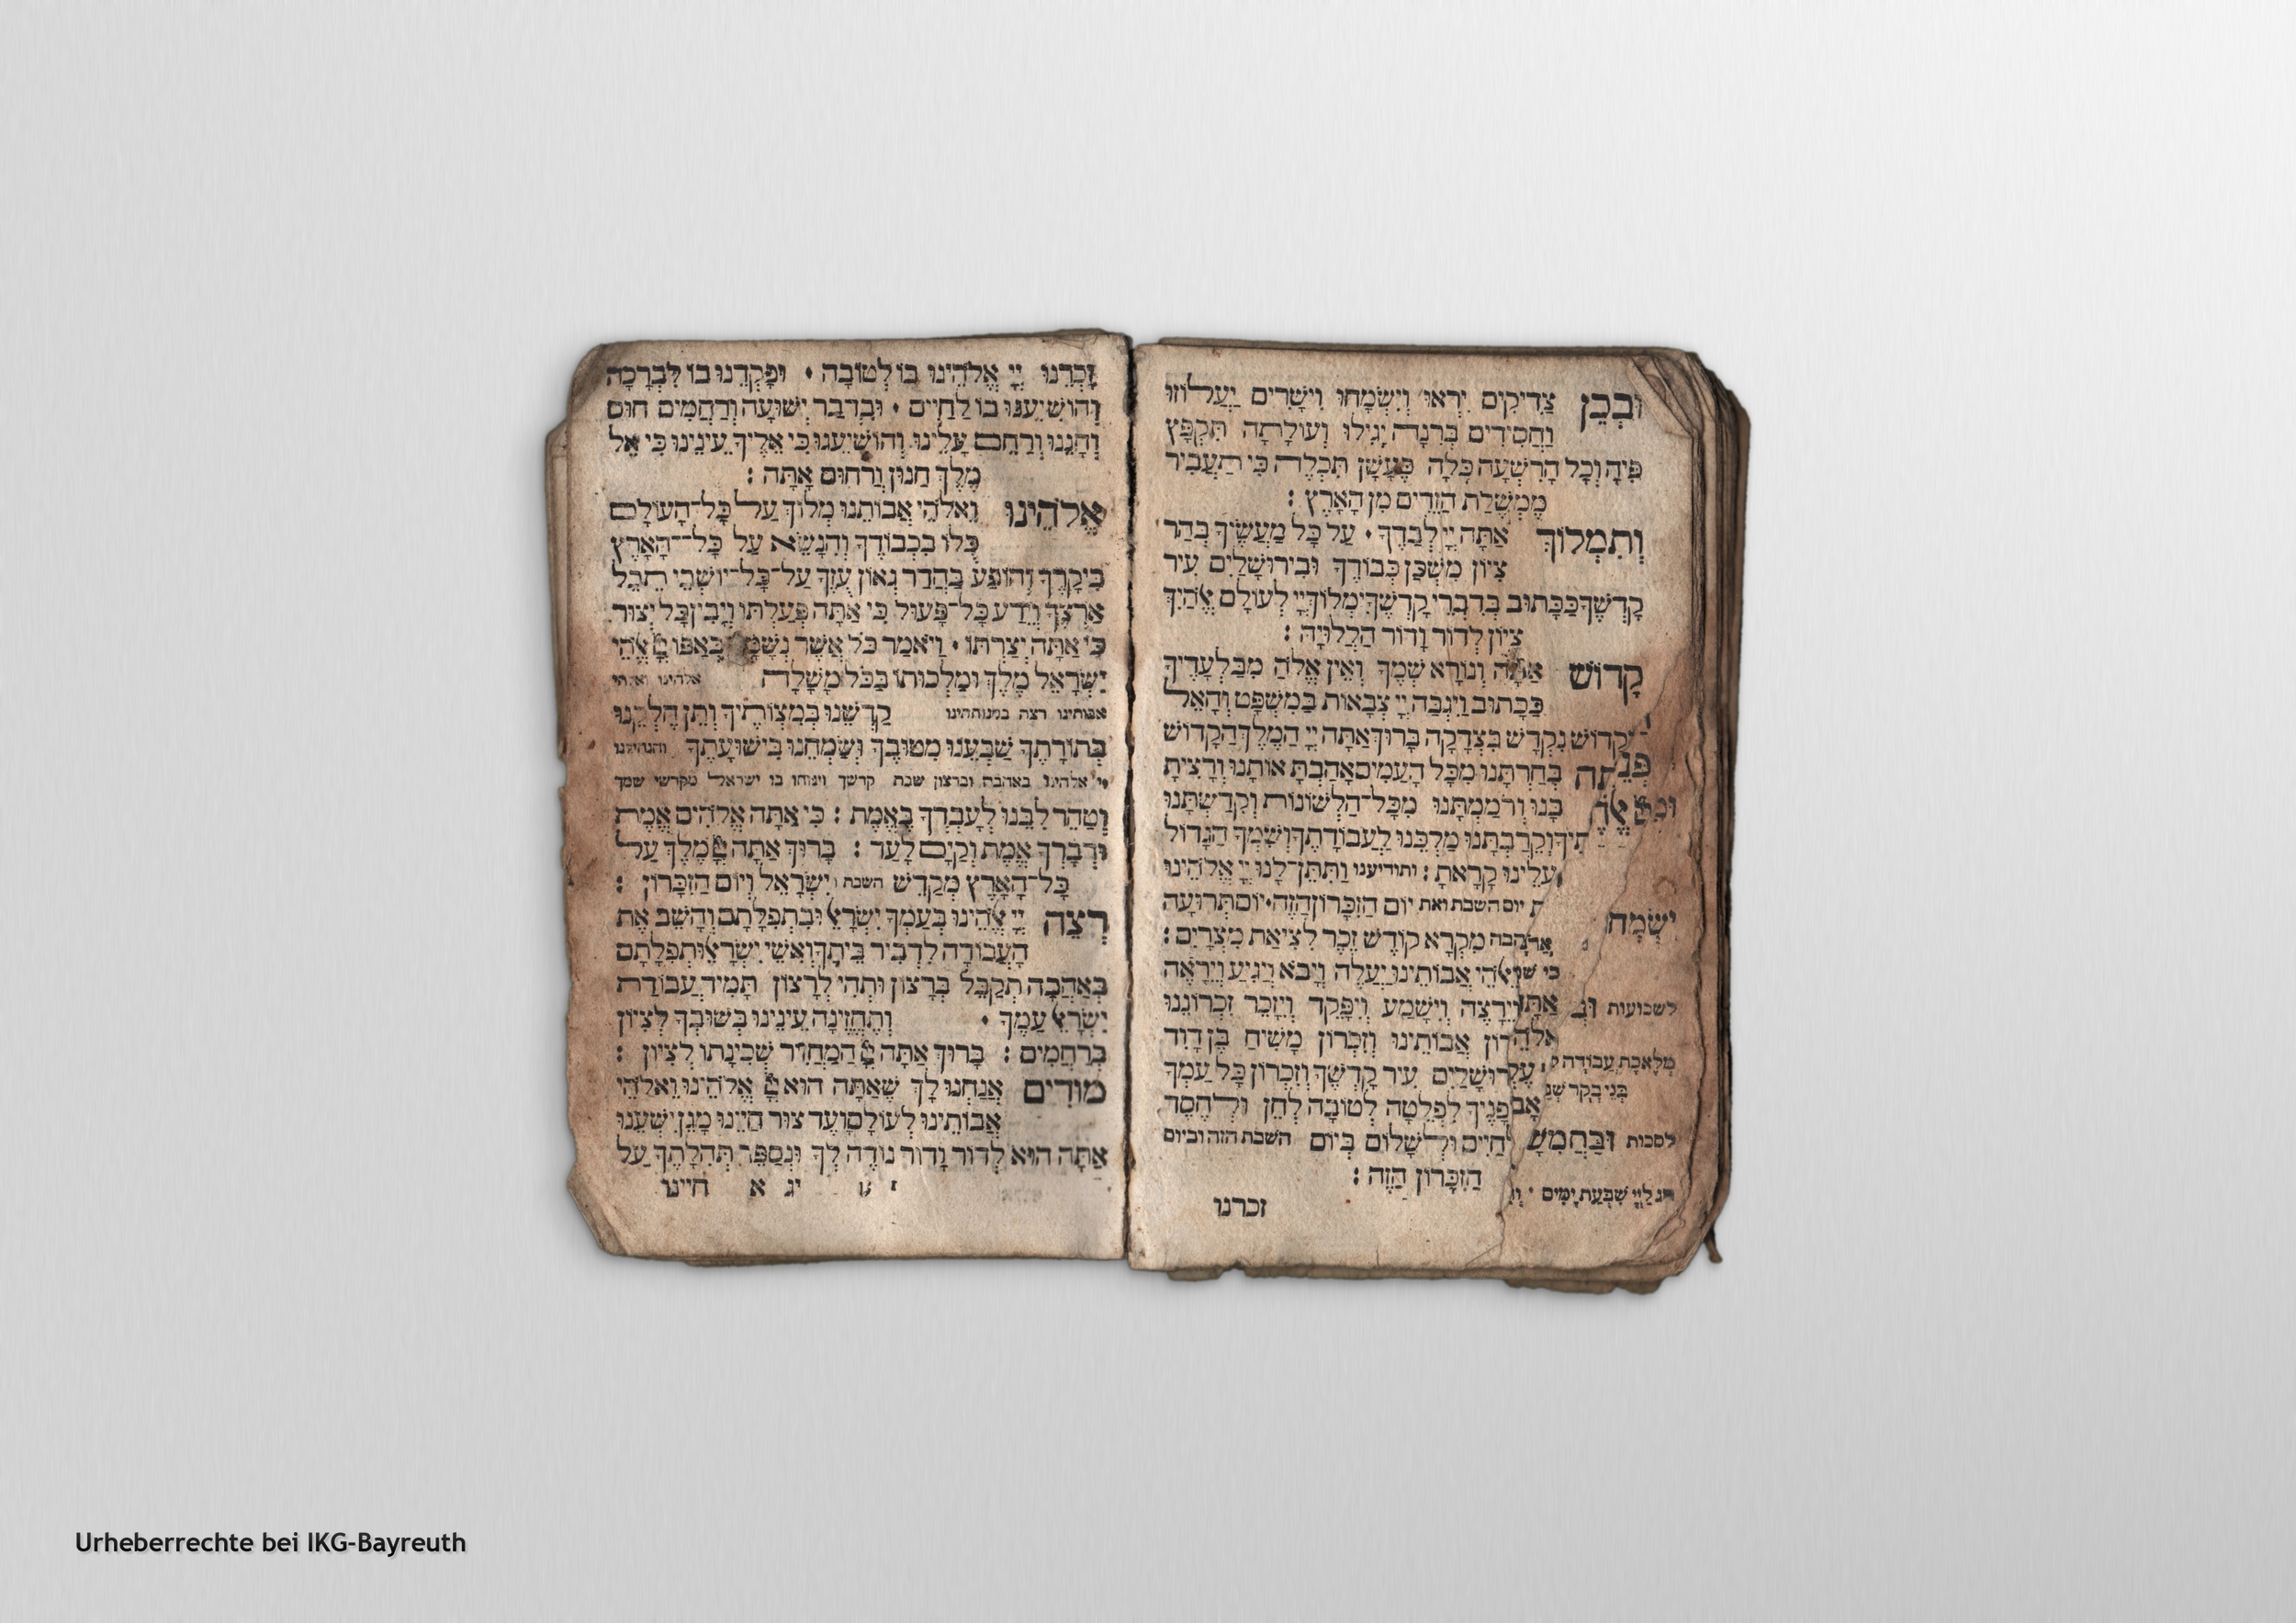 וּבְכֵן צַדִיקִים יִרְאוּ וְיִשְׂמָחוּ וִישָׁרִים יַעֲלוֹזוּ
וַחֲסִידִים בְּרִנָה יָגִילוּ וְעוֹלָתָה תִּקְפָּץ
פִּיהָ וְכָל הָרִשְׁעָה כֻּלָהּ כֶּעָשָׁן תִּכְלֶה כִּי תַעֲבִיר
מֶמְשֶׁלֶת הַזֵדִים מִן הָאָרֶץ :
וְתִמְלוֹךְ אַתָּה יְיָ לְבַדֶךָ • עַל כָּל מַעֲשֶׂיךָ בְּהַר
צִיוֹן מִשְׁכַּן כְּבוֹדֶךָ וּבִירוּשָׁלַיִם עִיר
קָדְשֶׁךָ כַּכָּתוּב בְּדִבְרֵי קָדְשֶׁךָ יִמְלוֹךְ יְיָ לְעוֹלָם אֱלֹהַיִךְ
צִיוֹן לְדוֹר וָדוֹר הַלְלוּיָהּ :
קָדוֹשׁ אַתָּה וְנוֹרָא שְׁמֶךָ וְאֵין אֱלוֹהַּ מִבַּלְעָדֶיךָ
כַּכָּתוּב וַיִגְבַּה יְיָ צְבָאוֹת בַּמִשְׁפָּט וְהָאֵל
הַקָדוֹשׁ נִקְדָשׁ בִּצְדָקָה בָּרוּךְ אַתָּה יְיָ הַמֶלֶךְ הַקָדוֹשׁ
בְּחַרְתָּנוּ מִכָּל הָעַמִים אָהַבְתָּ אוֹתָנוּ וְרָצִיתָ
בָּנוּ וְרֹמַמְתָּנוּ מִכָּל־הַלְשׁוֹנוֹת וְקִדַשְׁתָּנוּ
וְקֵרַבְתָּנוּ מַלְכֵּנוּ לַעֲבוֹדָתֶךָ וְשִׁמְךָ הַגָדוֹל
עָלֵינוּ קָרָאתָ : ותודיענו וַתִּתֶּן־לָנוּ יְיָ אֱלֹהֵינוּ
יום השבת ואת יוֹם הַזִכָּרוֹן הַזֶה • יוֹם תְּרוּעָה
יִשְׂמַח
באהבה מִקְרָא קוֹדֶשׁ זֵכֶר לִצִיאַת מִצְרָיִם :
אֲבוֹתֵינוּ יַעֲלֶה וְיָבֹא וְיַגִיעַ וְיֵרָאֶה
לשבועות וְיֵרָצֶה וְיִשָׁמַע וְיִפָּקֵד וְיִזָכֵר זִכְרוֹנֵנוּ
אֲבוֹתֵינוּ וְזִכְרוֹן מָשִׁיחַ בֶּן דָוִד
מְלֶאכֶת עֲבוֹדָה עִיר קָדְשֶׁךָ וְזִכְרוֹן כָּל עַמְךָ
בְּנֵי בָקָר לְפָנֶיךָ לִפְלֵטָה לְטוֹבָה לְחֵן וּלְחֶסֶד
לסכות וּבַחֲמִשָׁה לְחַיִים וּלְשָׁלוֹם בְּיוֹם השבת הזה וביום
הַזִכָּרוֹן הַזֶה :
חג לַייָ שִׁבְעַת יָמִים
זכרנו
זָכְרֵנוּ יְיָ אֱלֹהֵינוּ בּוֹ לְטוֹבָה • וּפָקְדֵנוּ בוֹ לִבְרָכָה
וְהוֹשִׁיעֵנוּ בוֹ לַחַיִים • וּבִדְבַר יְשׁוּעָה וְרַחֲמִים חוּס
וְחָנֵנוּ וְרַחֵם עָלֵינוּ וְהוֹשִׁיעֵנוּ כִּי אֵלֶיךָ עֵינֵינוּ כִּי אֵל
מֶלֶךְ חַנוּן וְרַחוּם אָתָּה :
אֱלֹהֵינוּ וֵאלֹהֵי אֲבוֹתֵנוּ מְלוֹךְ עַל כָּל־הָעוֹלָם
כֻּלוֹ בִּכְבוֹדֶךָ וְהִנָשֵׂא עַל כָּל־הָאָרֶץ
בִּיקָרֶךָ וְהוֹפַע בַּהֲדַר גְאוֹן עֻזֶךָ עַל־כָּל־יוֹשְׁבֵי תֵבֵל
אַרְצֶךָ וְיֵדַע כָּל־פָּעוּל כִּי אַתָּה פְּעַלְתּוֹ וְיָבִין כָּל יְצוּר
כִּי אַתָּה יְצַרְתּוֹ • וְיֹאמַר כֹּל אֲשֶׁר נְשָׁמָה בְּאַפּוֹ יְיָ אֱלֹהֵי
יִשְׂרָאֵל מֶלֶךְ וּמַלְכוּתוֹ בַּכֹּל מָשָׁלָה אלהינו ואלהי
אבותינו רצה במנוחתינו קַדְשֵׁנוּ בְּמִצְוֹתֶיךָ וְתֵן חֶלְקֵנוּ
בְּתוֹרָתֶךָ שַׂבְּעֵנוּ מִטוּבֶךָ וְשַׂמְחֵנוּ בִּישׁוּעָתֶךָ והנחילנו
יי אלהינו באהבה וברצון שבת קדשך וינוחו בו ישראל מקדשי שמך
וְטַהֵר לִבֵּנוּ לְעָבְדְךָ בֶּאֱמֶת : כִּי אַתָּה אֱלֹהִים אֱמֶת
וּדְבָרְךָ אֱמֶת וְקַיָם לָעַד : בָּרוּךְ אַתָּה יְיָ מֶלֶךְ עַל
כָּל־הָאָרֶץ מְקַדֵשׁ השבת ו יִשְׂרָאֵל וְיוֹם הַזִכָּרוֹן :
רְצֵה יְיָ אֱלֹהֵינוּ בְּעַמְךָ יִשְׂרָאֵל וּבִתְפִלָתָם וְהָשֵׁב אֶת
הָעֲבוֹדָה לִדְבִיר בֵּיתֶךָ וְאִשֵׁי יִשְׂרָאֵל וּתְפִלָתָם
בְּאַהֲבָה תְקַבֵּל בְּרָצוֹן וּתְהִי לְרָצוֹן תָּמִיד עֲבוֹדַת
יִשְׂרָאֵל עַמֶךָ • וְתֶחֱזֶינָה עֵינֵינוּ בְּשׁוּבְךָ לְצִיוֹן
בְּרַחֲמִים : בָּרוּךְ אַתָּה יְיָ הַמַחֲזִיר שְׁכִינָתוֹ לְצִיוֹן :
מוֹדִים אֲנַחְנוּ לָךְ שֶׁאַתָּה הוּא יְיָ אֱלֹהֵינוּ וֵאלֹהֵי
אֲבוֹתֵינוּ לְעוֹלָם וָעֶד צוּר חַיֵינוּ מָגֵן יִשְׁעֵנוּ
אַתָּה הוּא לְדוֹר וָדוֹר נוֹדֶה לְךָ וּנְסַפֵּר תְּהִלָתֶךָ עַל
יג א חיינו
Urheberrechte bei IKG-Bayreuth